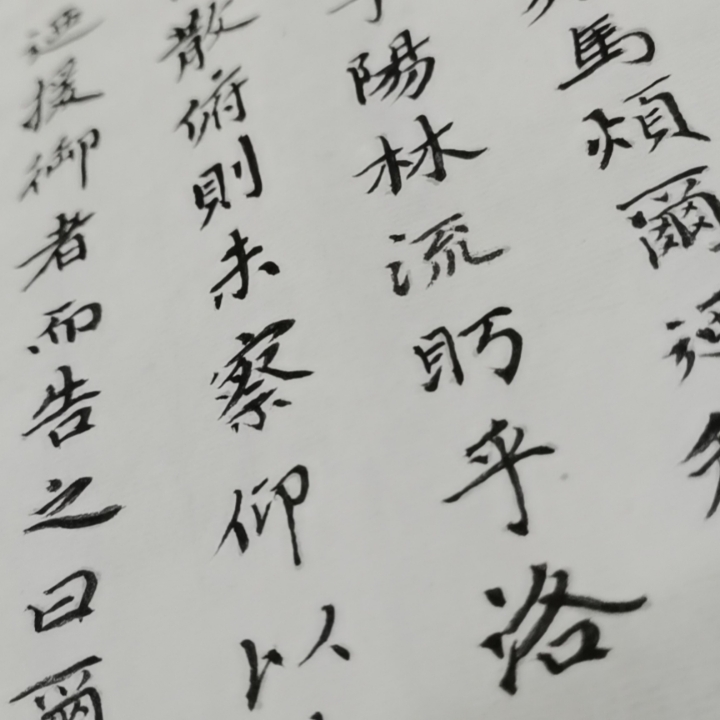 馬煩爾
陽林流眄乎洛
散俯則未察仰以
迺援御者而告之曰爾